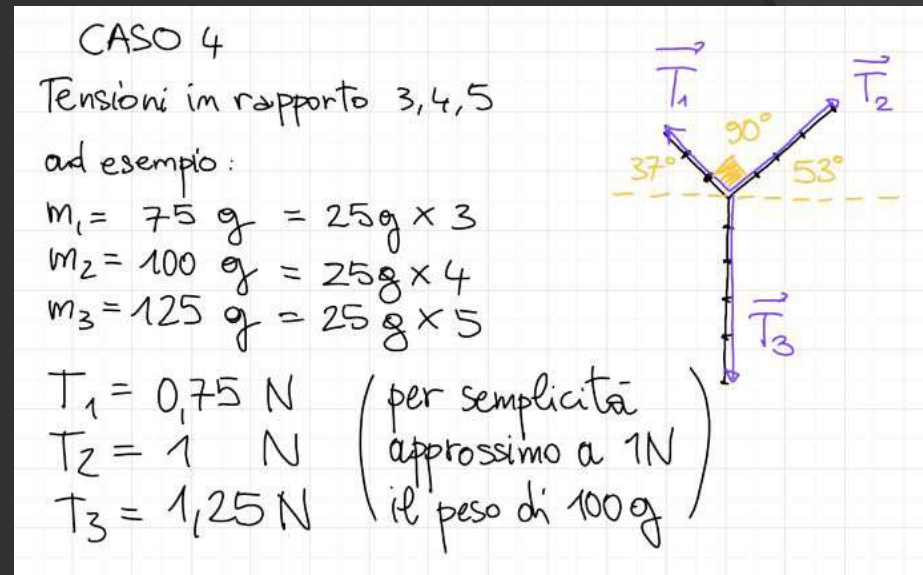 CASO 4
Tensioni in rapporto 3, 4, 5
ad esempio:
m₁ = 75 g = 25g × 3
m₂ = 100 g = 25g × 4
m₃ = 125 g = 25 g × 5
T₁ = 0,75 N
T₂ = 1 N
T₃ = 1,25 N
(per semplicità
approssimo a 1N
il peso di 100g)
T₁
T₂
90°
37°
53°
T₃